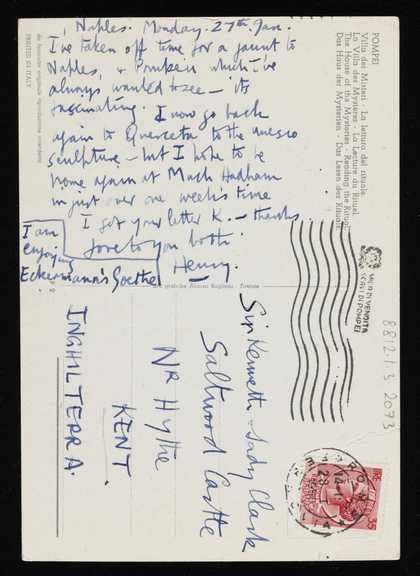 Naples. Monday. 27th. Jan.
I've taken off time for a jaunt to
Naples, & Pompeii which I've
always wanted to see – it's
fascinating. I now go back
again to Querceta to the unesco
sculpture – but I hope to be
home again at Much Hadham
in just over one week's time
I got your letter K. – thanks
love to you both
Henry.
I am
enjoying
Eckermann's Goethe
Sir Kenneth & Lady Clark
Saltwood Castle
Nr Hythe
KENT.
INGHILTERRA.
POMPEI
Villa dei Misteri - La lettura del rituale
La Villa des Mystères - La Lecture du Rituel
The House of the Mysteries - Reading the Ritual
Das Haus der Mysterien - Das Lesen des Rituals
PRINTED IN ITALY
IN VENDITA
SCAVI DI POMPEI
8812.1.3 2073
ROMA
35